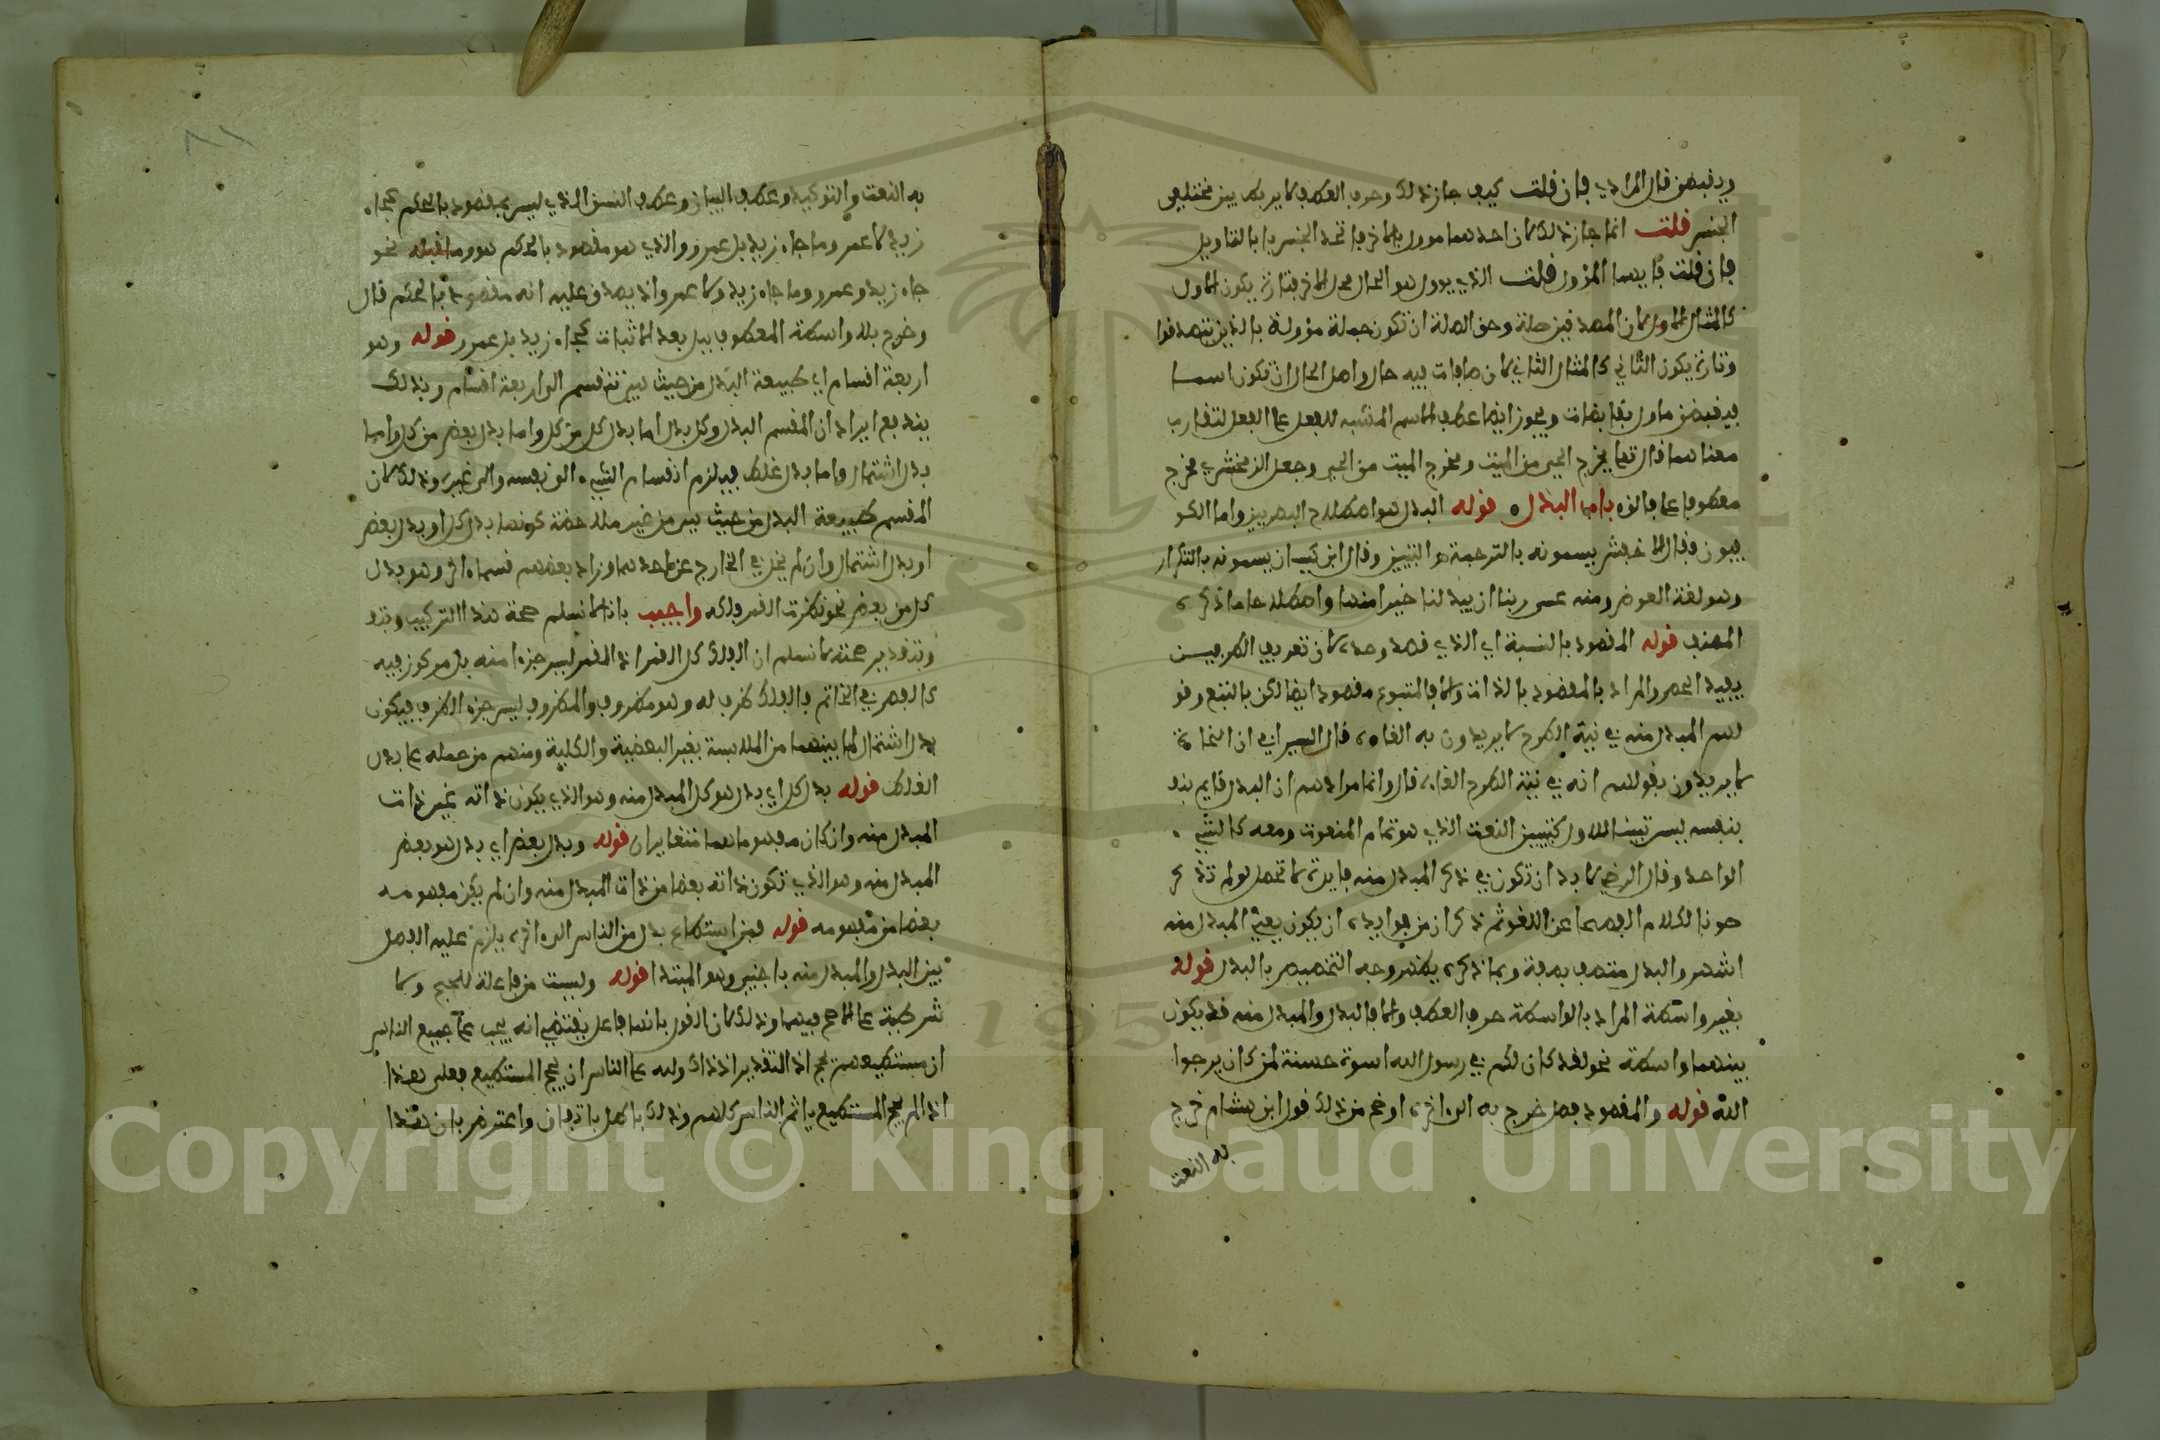 ويقبضن قال المرادي فان قلت كيف جاز ذلك وحرف العطف لا يربط بين مختلفي
الجنس قلت انما جاز ذلك لان احدهما مؤول بالاخر فاتحد الجنس بالتاويل
فان قلت فايهما المؤول قلت الذي يؤول هو الحال محل الاخر فتارة يكون الاول
كالمثال الاول لان المصدقين صلة وحق الصلة ان تكون جملة مؤولة بالذين تصدقوا
وتارة يكون الثاني كالمثال الثاني لان صافات فيه حال واصل الحال ان تكون اسما
فيقبضن ماول بقابضات ويجوز ايضا عطف الاسم المشبه للفعل على الفعل لتقارب
معناهما قال تعلى يخرج الحي من الميت ومخرج الميت من الحي وجعل الزمخشري مخرج
معطوفا على فالق باب البدل قوله البدل هو اصطلاح البصريين واما الكو
فيون فقال الاخفش يسمونه بالترجمة والتبيين وقال ابن كيسان يسمونه بالتكرار
وهو لغة العوض ومنه عسى ربنا ان يبدلنا خيرا منها واصطلاحا ما ذكره
المصنف قوله المقصود بالنسبة اي الذي قصد وحده لان تعريف الطرفين
يفيد الحصر والمراد بالمقصود بالذات والا فالمتبوع مقصود ايضا لكن بالتبع وقو
لهم المبدل منه في نية الطرح لا يريدون به الغاءه قال السيرافي ان النحاة
لا يريدون بقولهم انه في نية الطرح الغاءه قال وانما مرادهم ان البدل قايم بنفـ
بنفسه ليس تبيينا للاول كتبيين النعت الذي هو تمام المنعوت ومعه كالشيء
الواحد وقال الرضي لا بد ان تكون في ذكر المبدل منه فايدة لا تحصل لو لم تذكر
صونا لكلام الفصحا عن اللغو ثم ذكر ان من فوايده ان يكون يعني المبدل منه
اشهر والبدل متصف بصفة وبما ذكره يظهر وجه التخصيص بالبدل قوله
بغير واسطة المراد بالواسطة حرف العطف والا فالبدل والمبدل منه قد يكون
بينهما واسطة نحو لقد كان لكم في رسول الله اسوة حسنة لمن كان يرجوا
الله قوله والمقصود فصل خرج به الى اخره اوضح من ذلك قول ابن هشام خرج
به النعت
به النعت والتوكيد وعطف البيان وعطف النسق الذي ليس بمقصود بالحكم كجاء
زيد لا عمر وما جاء زيد بل عمرو والذي هو مقصود بالحكم هو وما قبله نحو
جاء زيد وعمرو وما جاء زيد ولا عمرو اذ يصدق عليه انه مقصود بالحكم قال
وخرج بلا واسطة المعطوف ببل بعد الاثبات كجاء زيد بل عمرو قوله وهو
اربعة اقسام اي طبيعة البدل من حيث هي تنقسم الى اربعة اقسام وبذلك
يندفع ايراد ان المقسم البدل وكل بدل اما بدل كل من كل واما بدل بعض من كل واما
بدل اشتمال واما بدل غلط فيلزم انقسام الشيء الى نفسه والى غيره وذلك لان
المقسم طبيعة البدل من حيث هي من غير ملاحظة كونها بدل كل او بدل بعض
او بدل اشتمال وان لم يخل في الخارج عن احدهما وزاد بعضهم قسما اخر وهو بدل
كل من بعض نحو نظرت القمر فلكه واجيب بانا لا نسلم صحة هذا التركيب
وبتقدير صحته لا نسلم ان الفلك كل القمر اذ القمر ليس جزءا منه بل مركوز فيه
كالفص في الخاتم فالفلك ظرف له وهو مظروف والمظروف ليس جزء الظرف فيكون
بدل اشتمال لما بينهما من الملابسة بغير البعضية والكلية ومنهم من حمله على بدل
الغلط قوله بدل كل اي بدل هو كل المبدل منه وهو الذي يكون ذاته عين ذات
المبدل منه وان كان مفهوماهما متغايران قوله وبدل بعض اي بدل هو بعض
المبدل منه وهو الذي تكون ذاته بعضا من ذات المبدل منه وان لم يكن مفهومه
بعضا من مفهومه قوله فمن استطاع بدل من الناس الى اخره يلزم عليه الفصل
بين البدل والمبدل منه باجنبي وهو المبتدا قوله وليست من فاعلة للحج ولا
شرطية على الاصح فيهما وذلك لان القول بانها فاعل يقتضي انه يجب على جميع الناس
ان مستطيعهم يحج اذ التقدير اذ ذاك ولله على الناس ان يحج المستطيع فعلى هذا
اذا لم يحج المستطيع ياثم الناس كلهم وذلك باطل باتفاق واعترض بان هذا